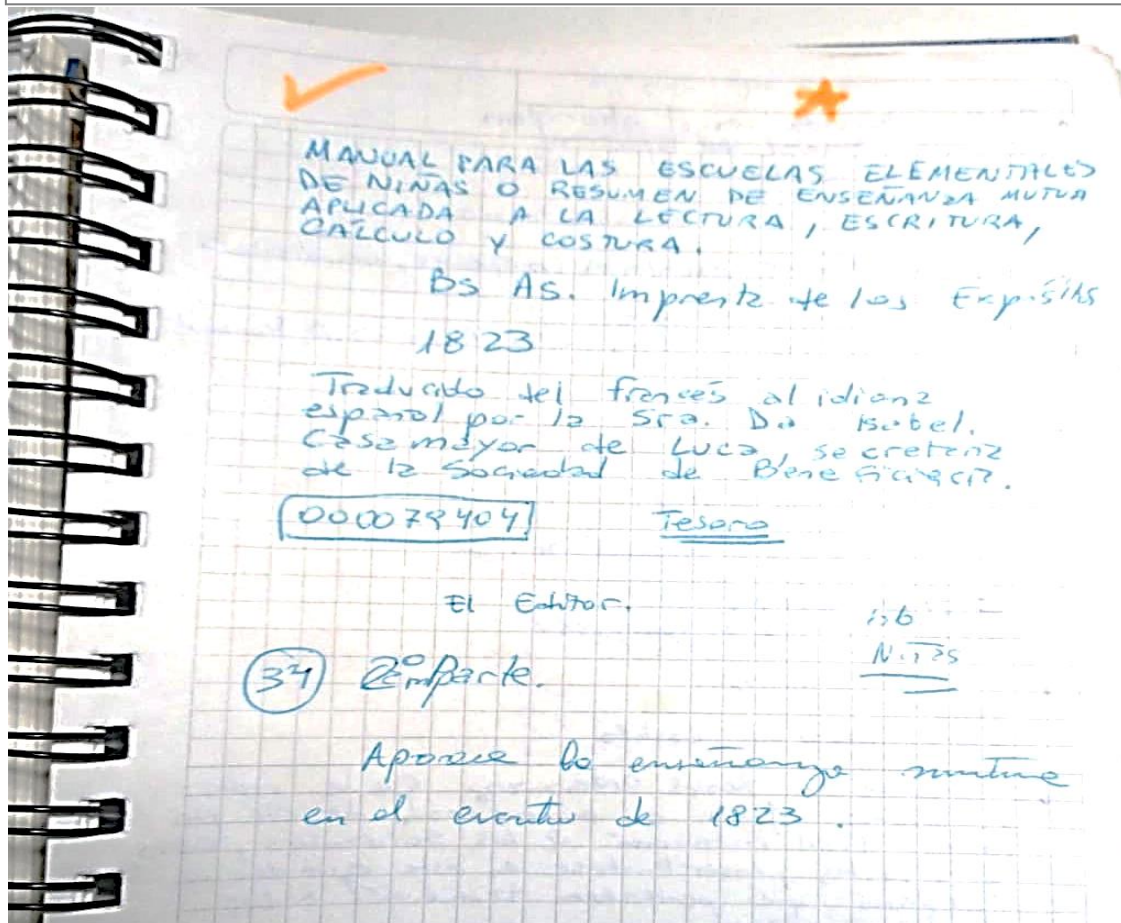 MANUAL PARA LAS ESCUELAS ELEMENTALES
DE NIÑAS O RESUMEN DE ENSEÑANZA MUTUA
APLICADA A LA LECTURA, ESCRITURA,
CALCULO Y COSTURA.
Bs As. Imprenta de los Expósitos
1823
Traducido del francés al idioma
español por la Sra. Da Isabel.
Casamayor de Luca, secretaria
de la Sociedad de Beneficiencia.
Tesoro
El Editor.
Niñas
34 2º Parte.
Aparece la enseñanza mutua
en el escrito de 1823.